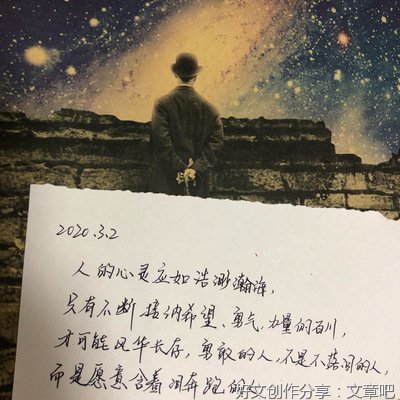 2020.3.2
人的心灵应如浩渺瀚海，
只有不断接纳希望、勇气、力量的百川，
才可能风华长存，勇敢的人，不是不落泪的人，
而是愿意含着泪奔跑的人
好文创作分享：文章吧